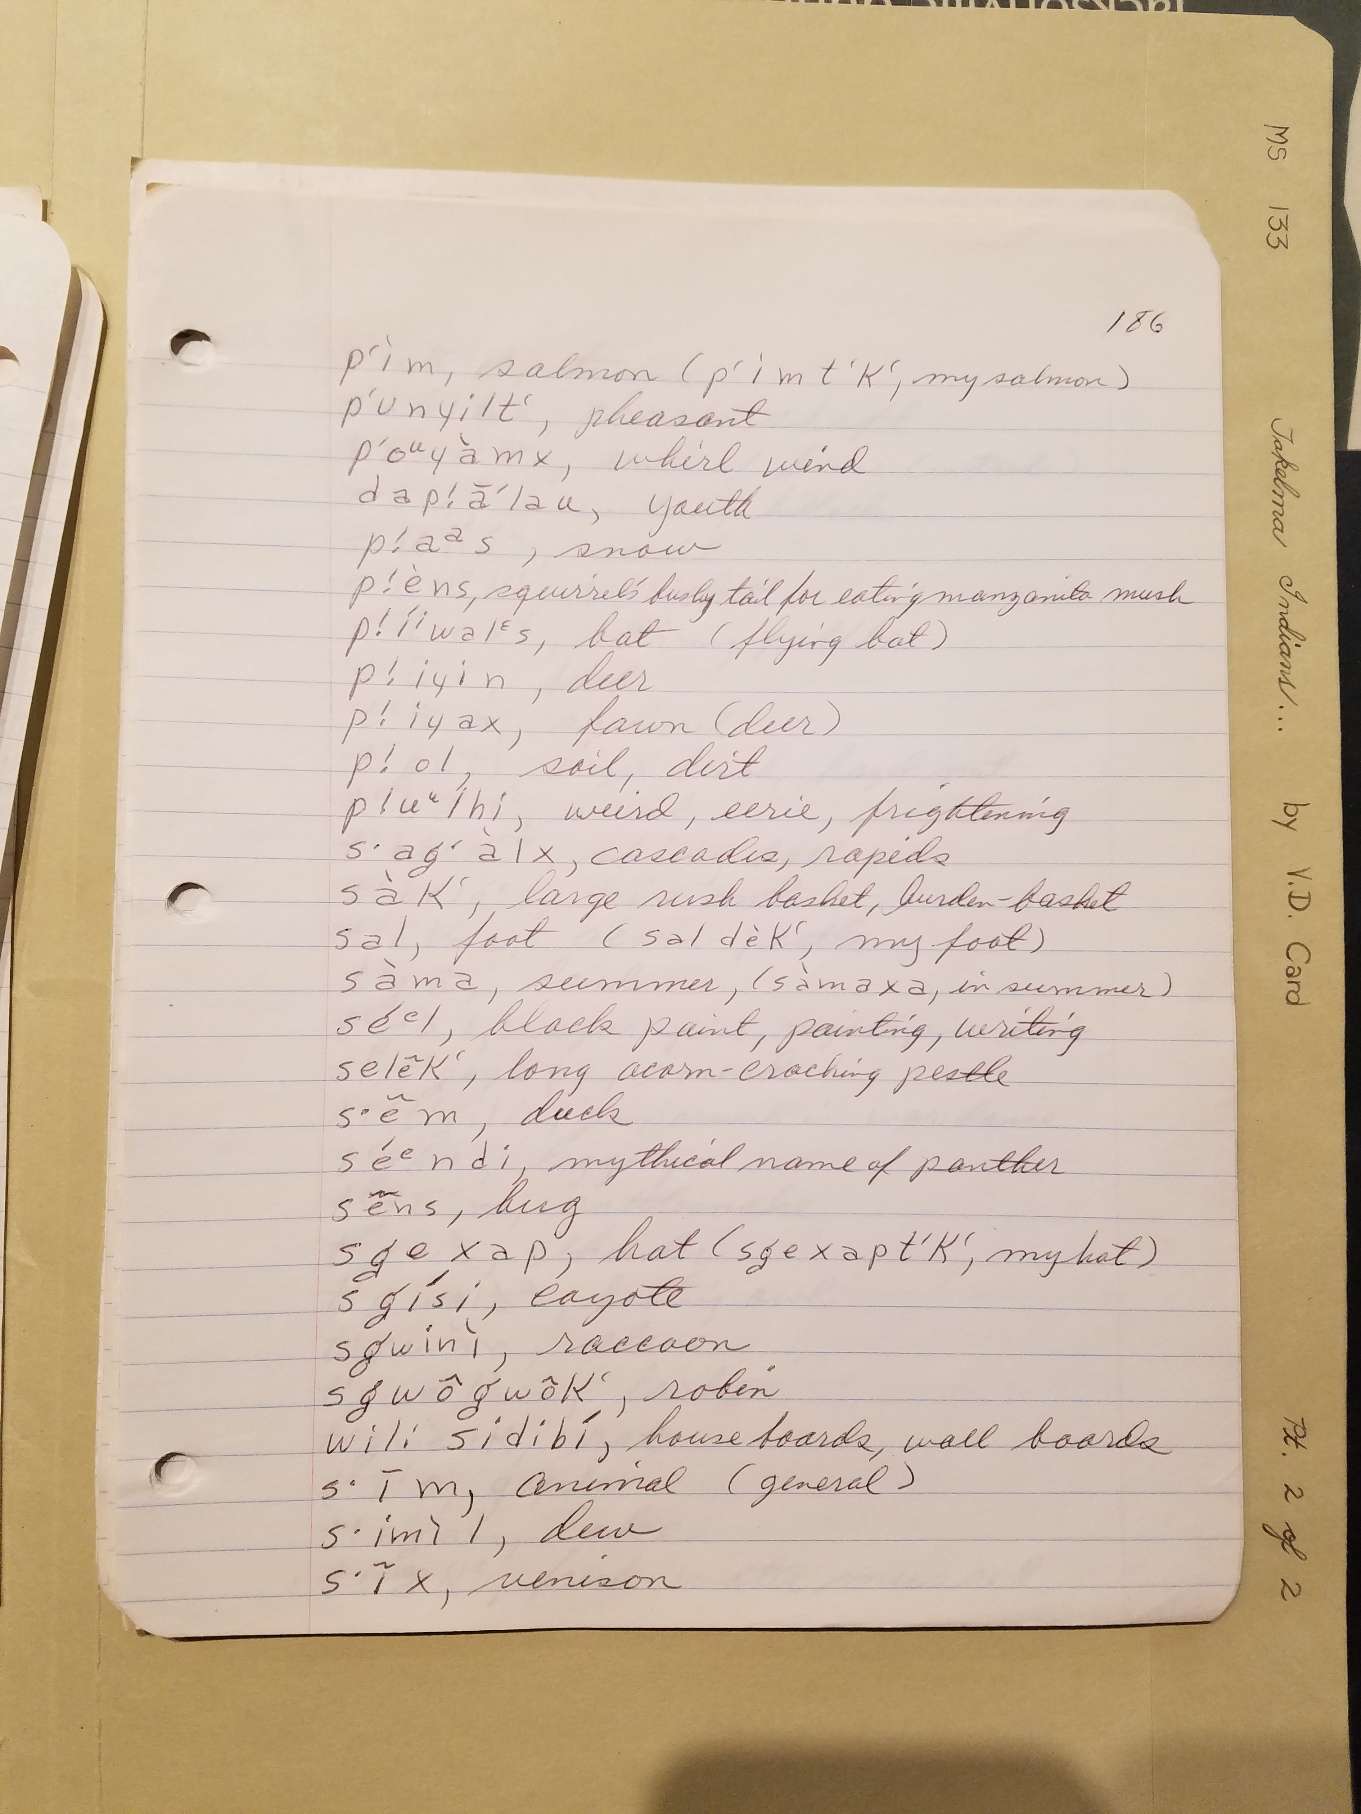 186
pʻìm, salmon (pʻìmtʻkʻ, my salmon)
pʻunyiltʻ, pheasant
pʻoᵘyàmx, whirl wind
dap!ā́lau, youth
p!aᵃs, snow
p!èns, squirrel's bushy tail for eating manzanita mush
p!íⁱwalᵋs, bat (flying bat)
p!iyin, deer
p!iyax, fawn (deer)
p!ol, soil, dirt
p!uᵘlhi, weird, eerie, frightening
s·agʻàlx, cascades, rapids
sàkʻ, large rush basket, burden-basket
sal, foot (saldèkʻ, my foot)
sàma, summer, (sàmaxa, in summer)
séᵉl, black paint, painting, writing
selēkʻ, long acorn-cracking pestle
s·ẽm, duck
séᵉndi, mythical name of panther
sẽns, bug
sgexap, hat (sgexaptʻkʻ, my hat)
sgísi, coyote
sgwinì, raccoon
sgwôgwôkʻ, robin
wili sidibí, house boards, wall boards
s·īm, animal (general)
s·imìl, dew
s·ĩx, venison
MS 133 Takelma Indians... by V.D. Card Pt. 2 of 2